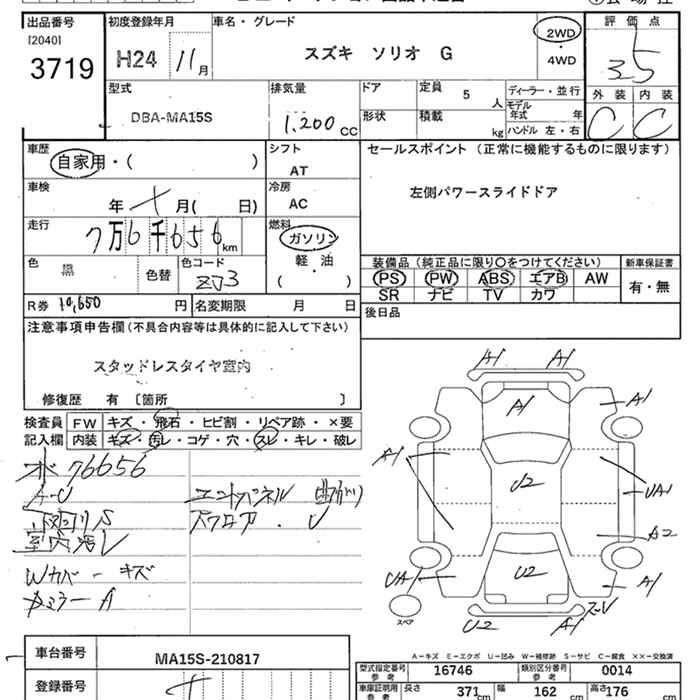 出品番号 初度登録年月 車名・グレード 評価点
[2040]
3719 H24 11月 スズキ ソリオ G 2WD・4WD 3.5
型式 排気量 ドア 定員 5人 ディーラー・並行 外装 内装
DBA-MA15S 1.200cc 形状 積載 kg モデル年式 年 C C
ハンドル 左・右
車歴 シフト セールスポイント (正常に機能するものに限ります)
自家用・( ) AT
車検 冷房 左側パワースライドドア
年 月( 日) AC
走行 燃料
7万6千656km ガソリン
色 色コード 軽・油 装備品 (純正品に限り○をつけてください) 新車保証書
黒 色替 ZJ3 ( ) PS PW ABS エアB AW 有・無
SR ナビ TV カワ
R券 10,650円 名変期限 月 日 後日品
注意事項申告欄 (不具合内容等は具体的に記入して下さい)
スタッドレスタイヤ室内
修復歴 有 〔箇所 〕
検査員 FW キズ・飛石・ヒビ割・リペア跡・×要
記入欄 内装 キズ・汚レ・コゲ・穴・スレ・キレ・破レ
76656
A-U
室内汚レ
Wカバー キズ
カメラー A
A1 A1
A1 A1
A1 U2 UA1
A2
UA1 U2 A1
スペア U2 A1
A-キズ E-エクボ U-凹み W-補修跡 S-サビ C-腐食 ××-交換済
車台番号 MA15S-210817 型式指定番号 参考 16746 類別区分番号 参考 0014
登録番号 車庫証明用 参考 長さ 371cm 幅 162cm 高さ 176cm